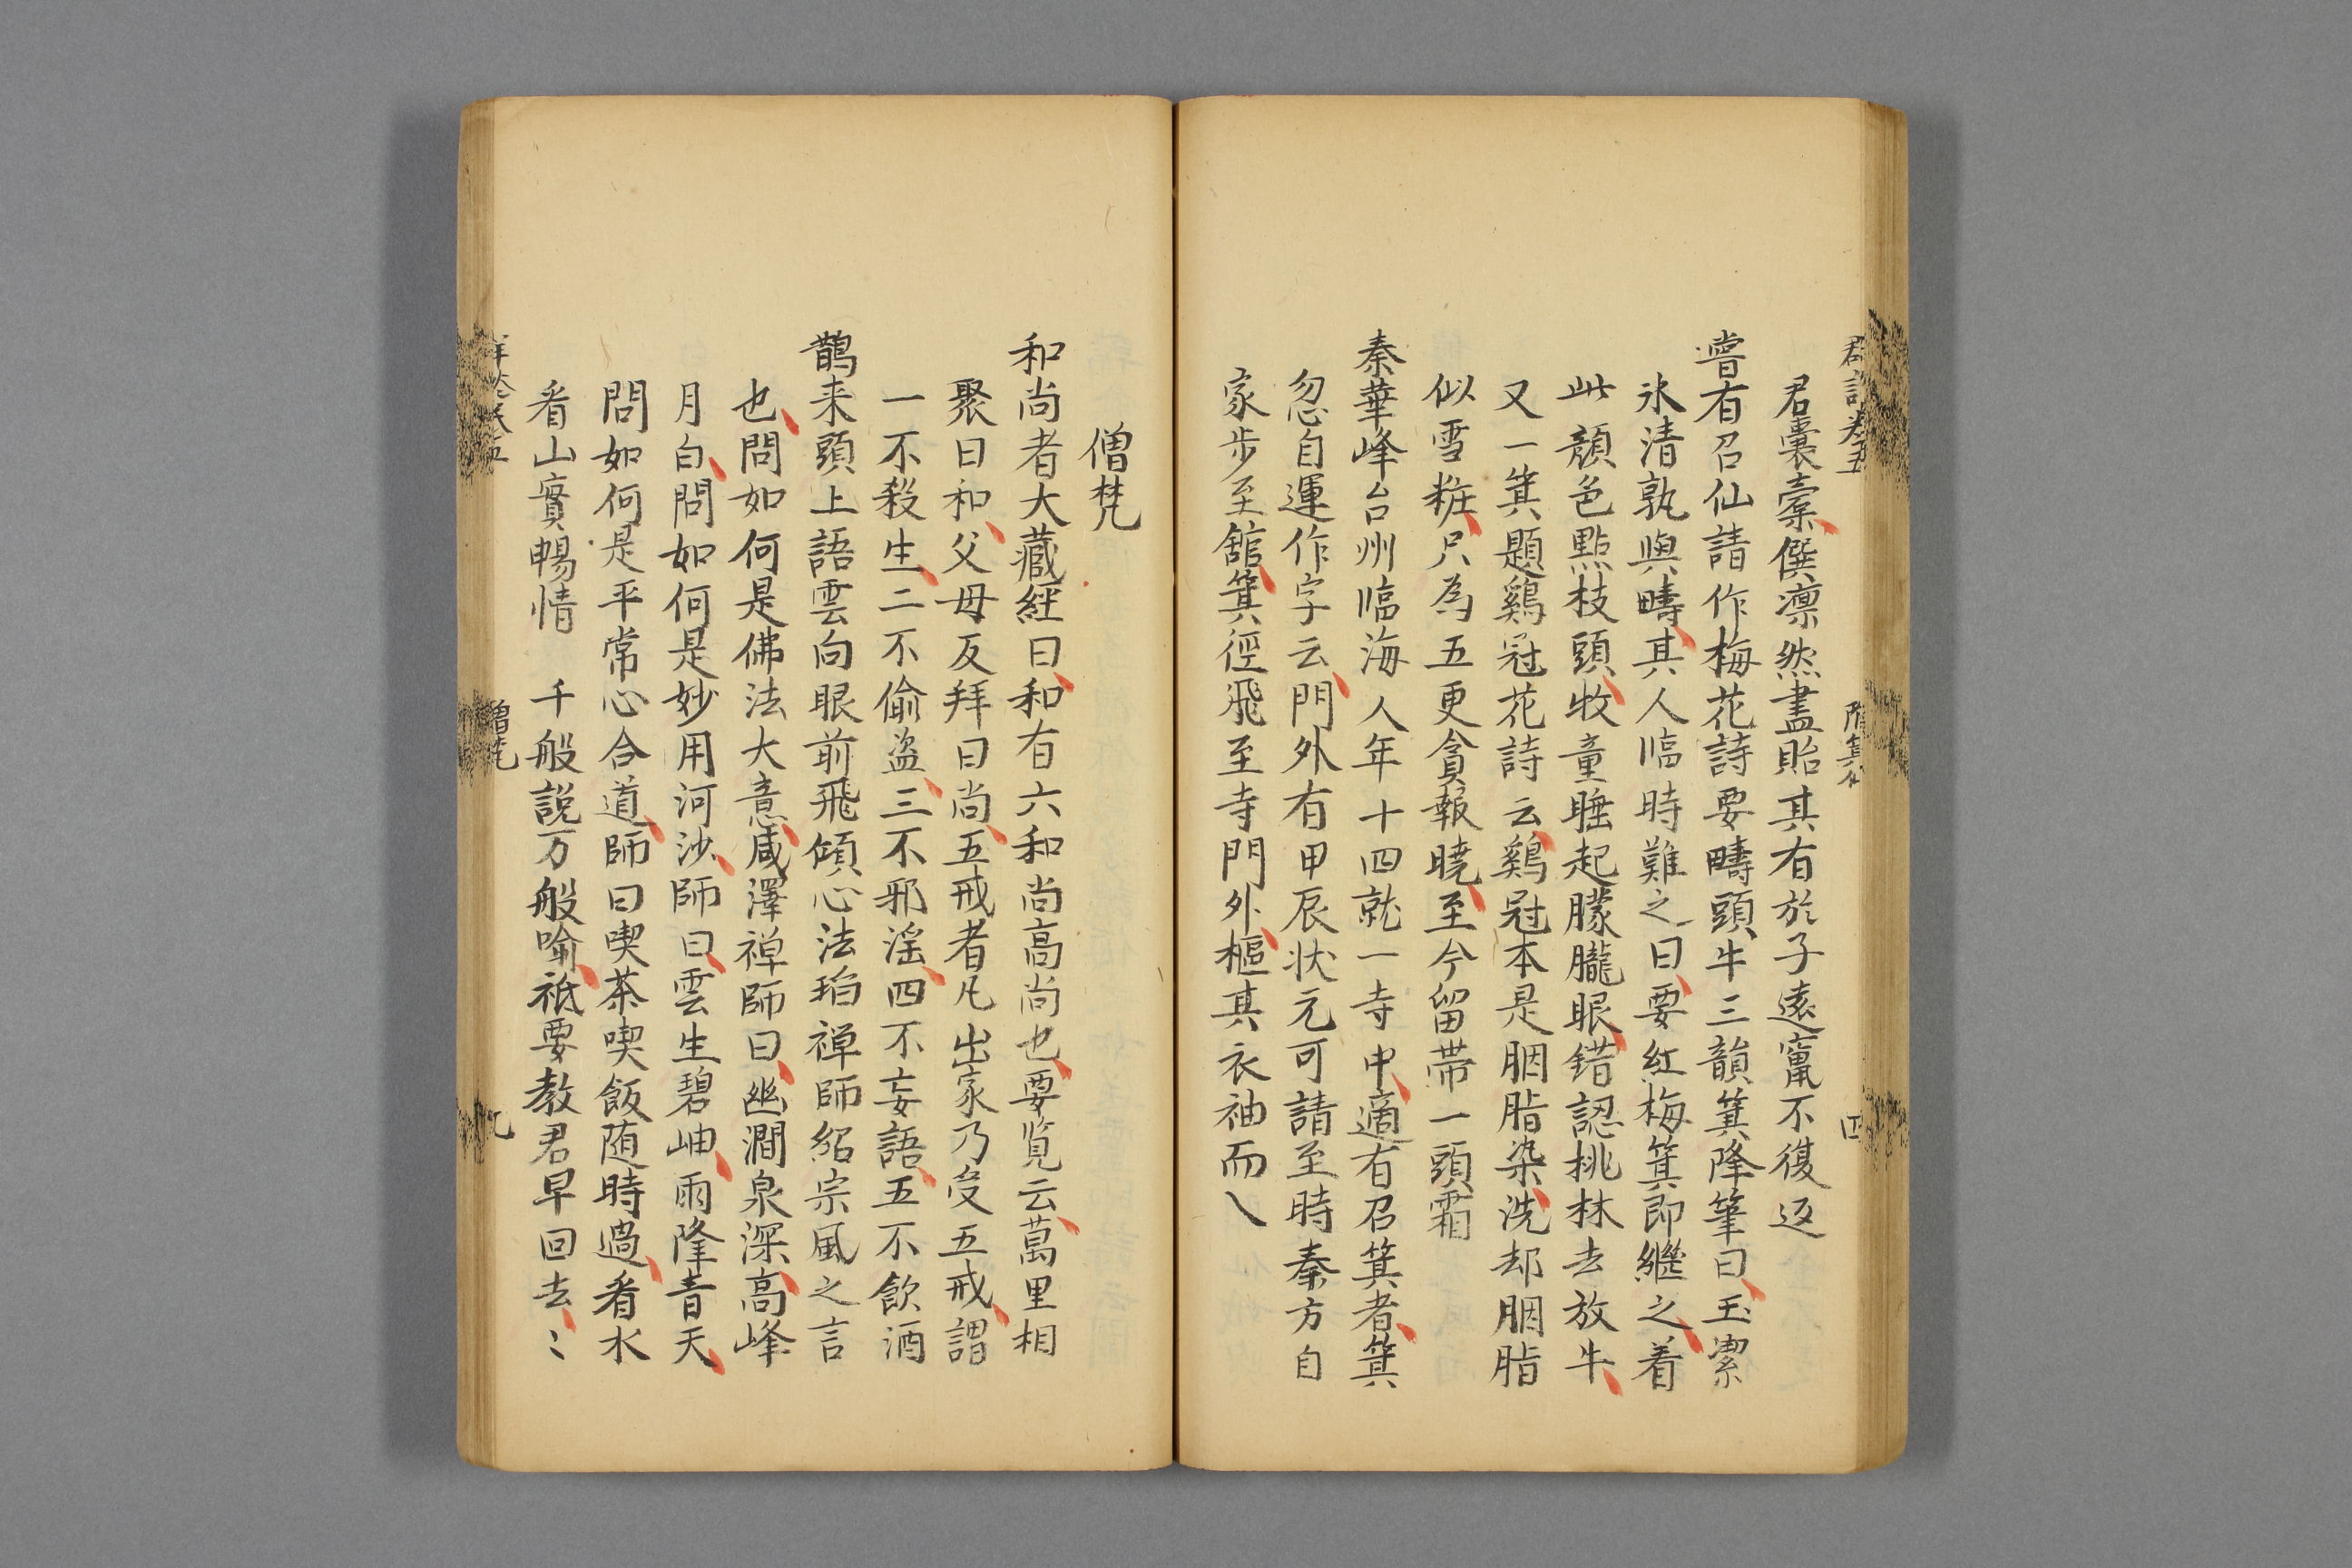 君囊橐僎凛然盡貽其有於子遠竄不復返
嘗有召仙請作梅花詩要疇頭牛三韻箕降筆曰玉潔
氷清孰與疇其人臨時難之曰要紅梅箕即繼之着
此顔色點枝頭牧童睡起朦朧眼錯認桃林去放牛
又一箕題鷄冠花詩云鷄冠本是胭脂染洗却胭脂
似雪粧只為五更貪報曉至今留帶一頭霜
秦華峰台州臨海人年十四就一寺中適有召箕者箕
忽自運作字云門外有甲辰状元可請至時秦方自
家步至舘箕徑飛至寺門外樞其衣袖而入
僧梵
和尚者大藏經曰和有六和尚高尚也要覧云萬里相
聚曰和父母反拜曰尚五戒者凡出家乃受五戒謂
一不殺生二不偷盗三不邪淫四不妄語五不飲酒
鵲来頭上語雲向眼前飛傾心法珀禅師紹宗風之言
也問如何是佛法大意咸澤禅師曰幽澗泉深高峰
月白問如何是妙用河沙師曰雲生碧岫雨降青天
問如何是平常心合道師曰喫茶喫飯随時過看水
看山實暢情 千般説万般喻祗要教君早回去〻
僧梵